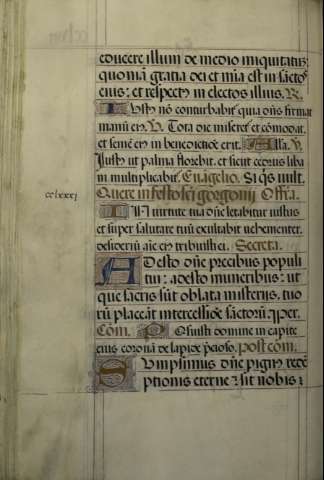 educere illum de medio iniquitatis
quoniā gratia dei et mīa est in sāctos
eius: et respect⁹ in electos illius. R.
Iust⁹ nō conturbabit᷑ quia dn̄s firmat
manū ei⁹. V. Tota die miseret᷑ et cōmodat.
et semē ei⁹ in benedictiōe erit. Alla. V.
Iust⁹ ut palma florebit. et sicut cedrus liba
ni multiplicabit᷑. Euāgelio. Si q̄s vult.
Quere in festo sci gorgonij Offā.
cclxxxj
IN uirtute tua dn̄e letabitur iustus
et super salutare tuū exultabit uehementer.
desideriū aīe ei⁹ tribuisti ei. Secreta.
Adesto dn̄e precibus populi
tui: adesto muneribus: ut
que sacris sūt oblata misterijs, tuo
rū placeāt intercessiōe sāctorū. ꝑ.
Cōm. Posuisti domine in capite
eius coronā de lapide p̄cioso. Post cōm.
Sumpsimus dn̄e pign⁹ redē
ptionis eterne: sit nobis: